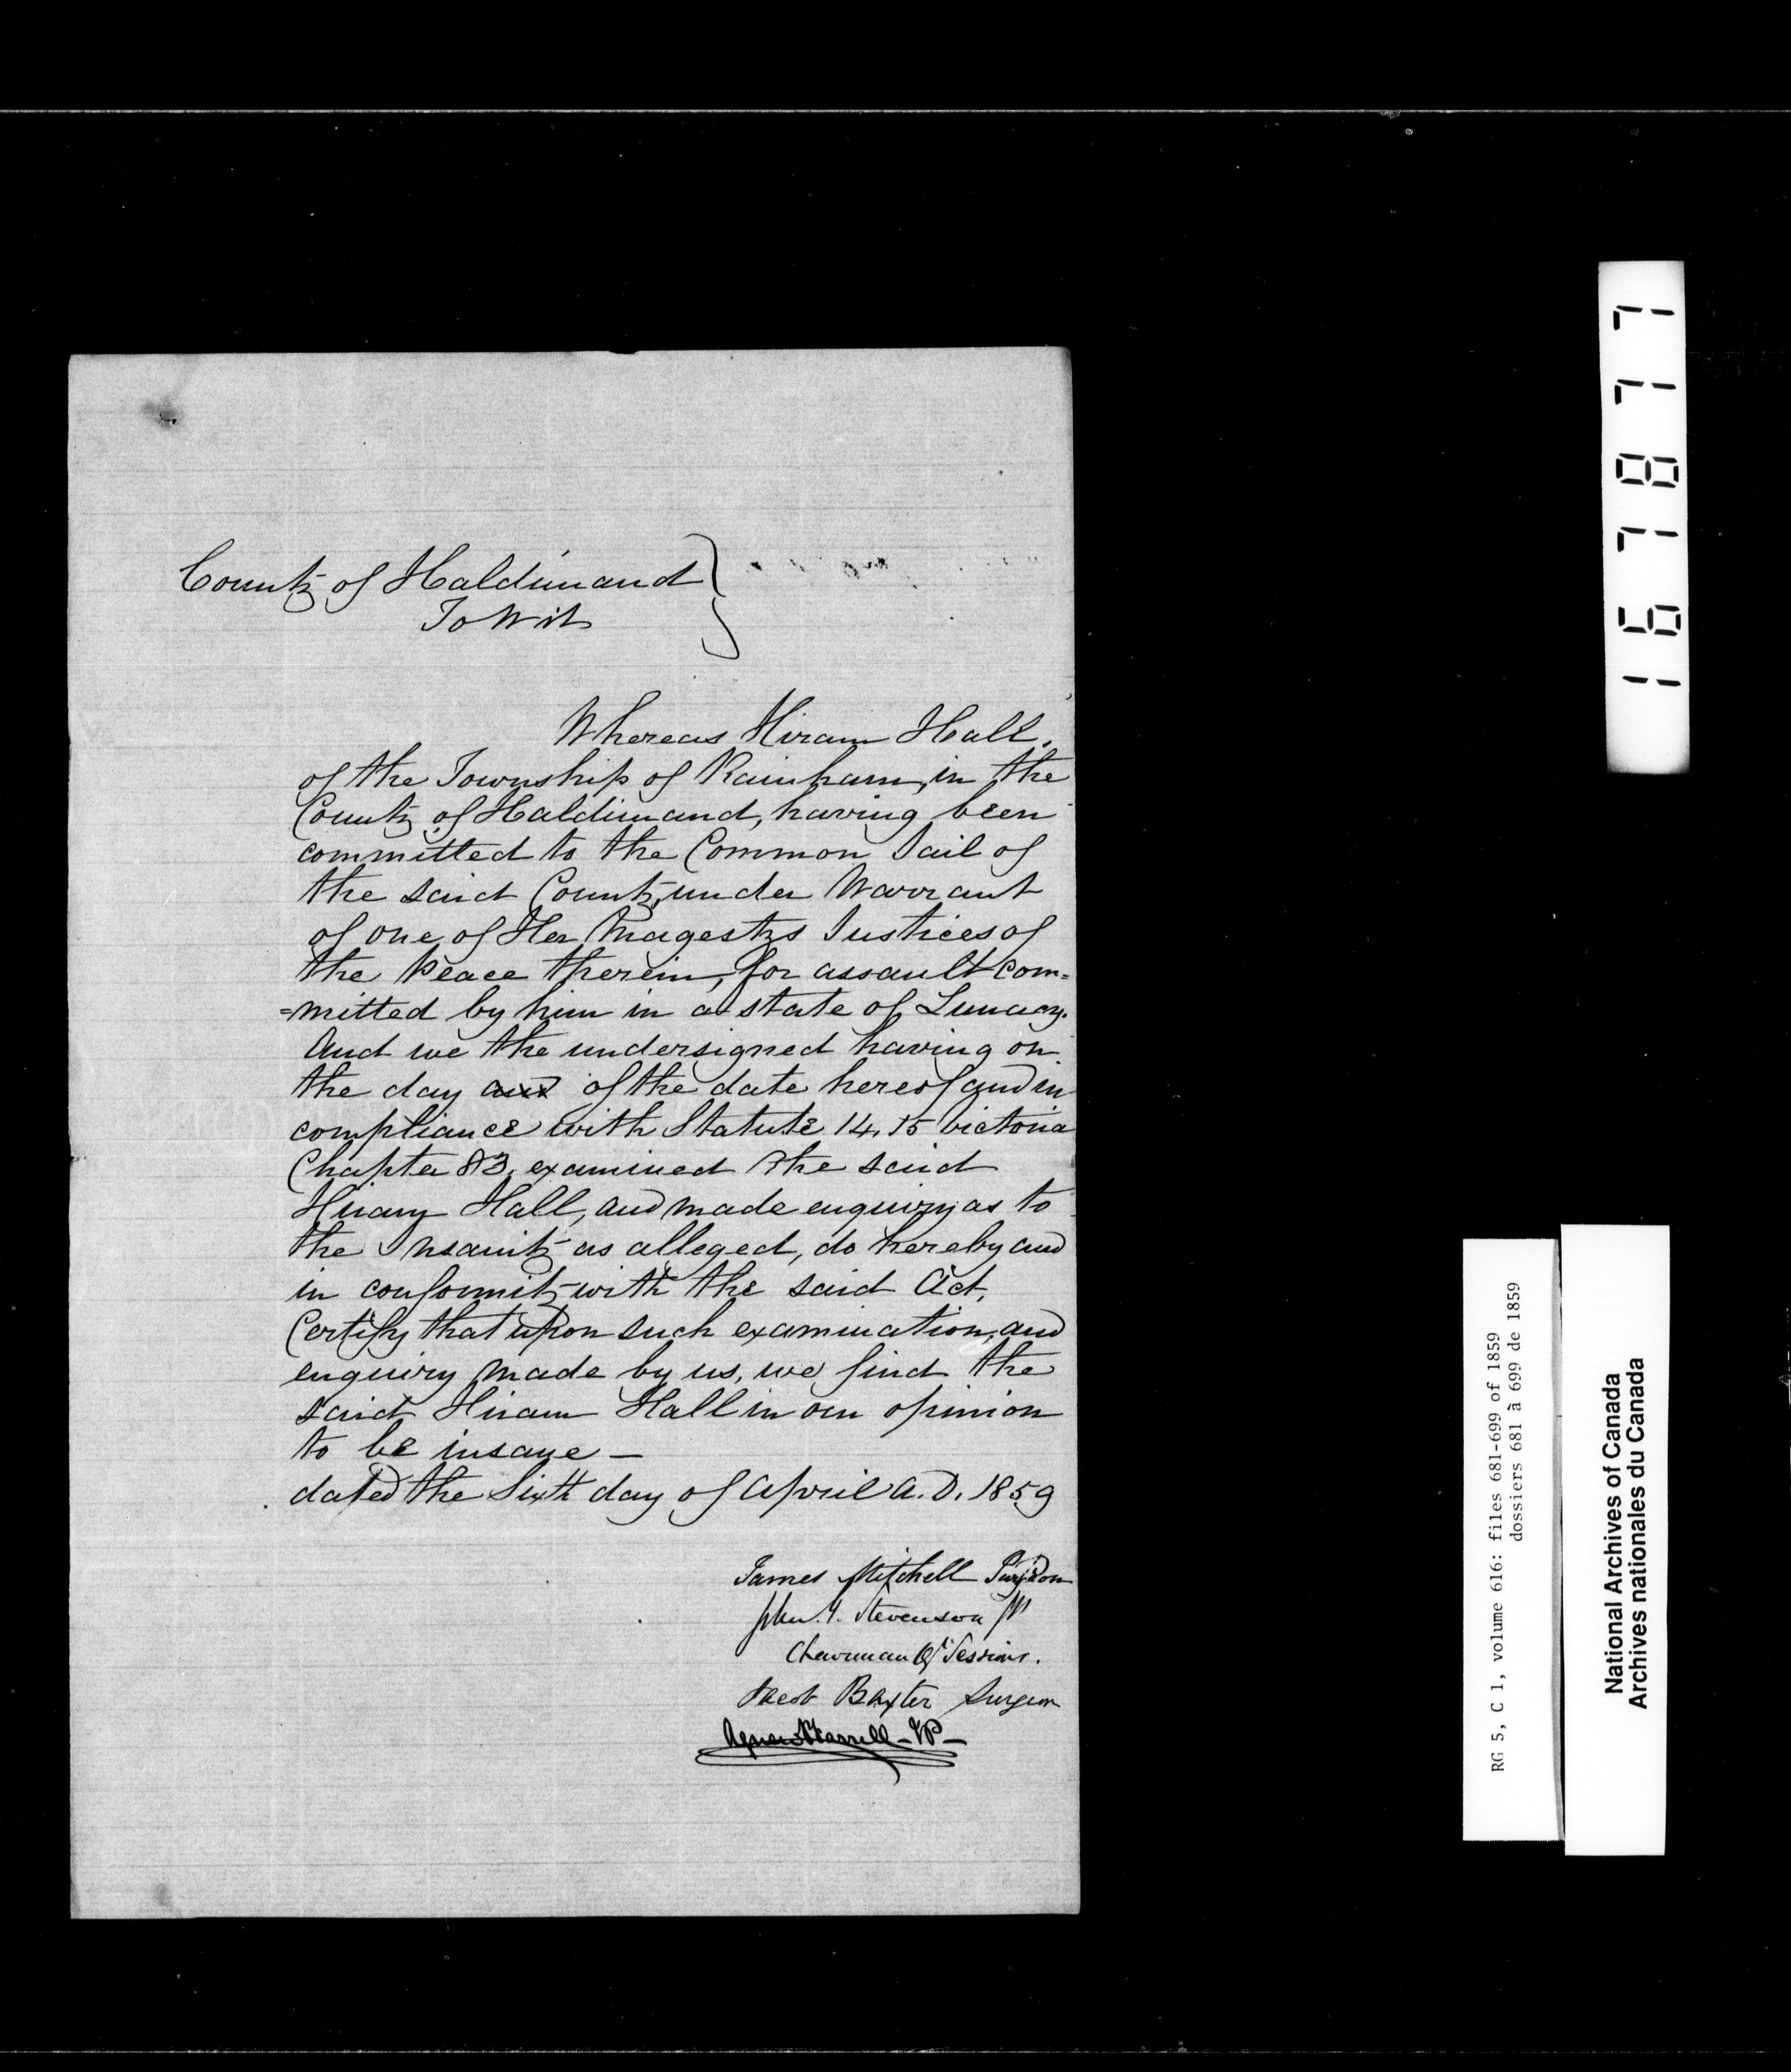 County of Haldimand }
To Wit
Whereas Hiram Hall,
of the Township of Rainham, in the
County of Haldimand, having been
committed to the Common Jail of
the said County, under Warrant
of one of Her Magestys Justices of
the Peace therein, for assault com=
=mitted by him in a state of Lunacy.
And we the undersigned having on
the day and of the date hereof and in
compliance with Statute 14, 15 Victoria
Chapter 83, examined the said
Hiram Hall, and made enquiry as to
the Insanity as alleged, do hereby and
in conformity with the said Act,
Certify that upon such examination, and
enquiry made by us, we find the
said Hiram Hall in our opinion
to be insane —
dated the Sixth day of April A.D. 1859
James Mitchell Surgeon
John Y. Stevenson JP
Chairman Qr Sessions.
Jacob Baxter Surgeon
Agnew Farrell — JP —
167877
RG 5, C 1, volume 616: files 681-699 of 1859
dossiers 681 à 699 de 1859
National Archives of Canada
Archives nationales du Canada